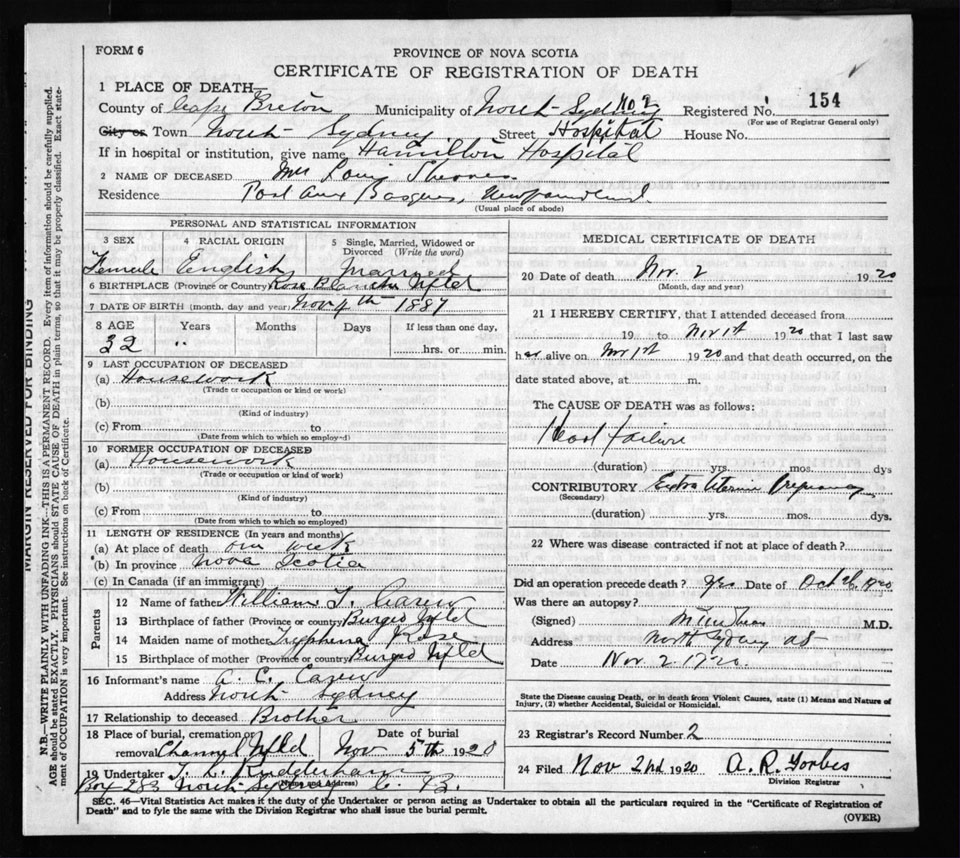 FORM 6
PROVINCE OF NOVA SCOTIA
CERTIFICATE OF REGISTRATION OF DEATH
1 PLACE OF DEATH—
County of Cape Breton Municipality of North Sydney No 2 Registered No. 154
(For use of Registrar General only)
City or Town North Sydney Street Hospital House No.
If in hospital or institution, give name Hamilton Hospital
2 NAME OF DECEASED Mrs Louis
Residence Port aux Basques, Newfoundland.
(Usual place of abode)
PERSONAL AND STATISTICAL INFORMATION
3 SEX 4 RACIAL ORIGIN 5 Single, Married, Widowed or Divorced (Write the word)
Female English Married
6 BIRTHPLACE (Province or Country) Rose Blanche Nfld
7 DATE OF BIRTH (month, day and year) Nov 4th 1887
8 AGE Years Months Days If less than one day,
32 " hrs. or min.
9 LAST OCCUPATION OF DECEASED
(a) Housework
(Trade or occupation or kind or work)
(b)
(Kind of industry)
(c) From to
(Date from which to which so employed)
10 FORMER OCCUPATION OF DECEASED
(a) Housework
(Trade or occupation or kind of work)
(b)
(Kind of industry)
(c) From to
(Date from which to which so employed)
11 LENGTH OF RESIDENCE (In years and months)
(a) At place of death one week
(b) In province Nova Scotia
(c) In Canada (if an immigrant)
Parents
12 Name of father William T. Carew
13 Birthplace of father (Province or country) Burgeo Nfld
14 Maiden name of mother Tryphena Rose
15 Birthplace of mother (Province or country) Burgeo Nfld
16 Informant's name A. C. Carew
Address North Sydney
17 Relationship to deceased Brother
18 Place of burial, cremation or removal Channel Nfld Date of burial Nov 5th 1920
19 Undertaker T. L. Rudderham
(Name and Address)
Box 283 North Sydney C. B.
MEDICAL CERTIFICATE OF DEATH
20 Date of death Nov. 2 1920
(Month, day and year)
21 I HEREBY CERTIFY, that I attended deceased from
19 to Nov 1st 1920 that I last saw
her alive on Nov 1st 1920 and that death occurred, on the
date stated above, at m.
The CAUSE OF DEATH was as follows:
Heart failure
(duration) yrs. mos. dys
CONTRIBUTORY Extra Uterine Pregnancy
(Secondary)
(duration) yrs. mos. dys.
22 Where was disease contracted if not at place of death?
Did an operation precede death? Yes Date of Oct 26, 1920
Was there an autopsy?
(Signed) M.D.
Address North Sydney
Date Nov. 2. 1920.
State the Disease causing Death, or in death from Violent Causes, state (1) Means and Nature of Injury, (2) whether Accidental, Suicidal or Homicidal.
23 Registrar's Record Number 2
24 Filed Nov 2nd 1920 A. R. Forbes
Division Registrar
SEC. 46—Vital Statistics Act makes it the duty of the Undertaker or person acting as Undertaker to obtain all the particulars required in the "Certificate of Registration of
Death" and to fyle the same with the Division Registrar who shall issue the burial permit.
(OVER)
MARGIN RESERVED FOR BINDING
N.B.—WRITE PLAINLY WITH UNFADING INK—THIS IS A PERMANENT RECORD. Every item of information should be carefully supplied.
AGE should be stated EXACTLY. PHYSICIANS should STATE CAUSE OF DEATH in plain terms, so that it may be properly classified. Exact state-
ment of OCCUPATION is very important. See instructions on back of Certificate.